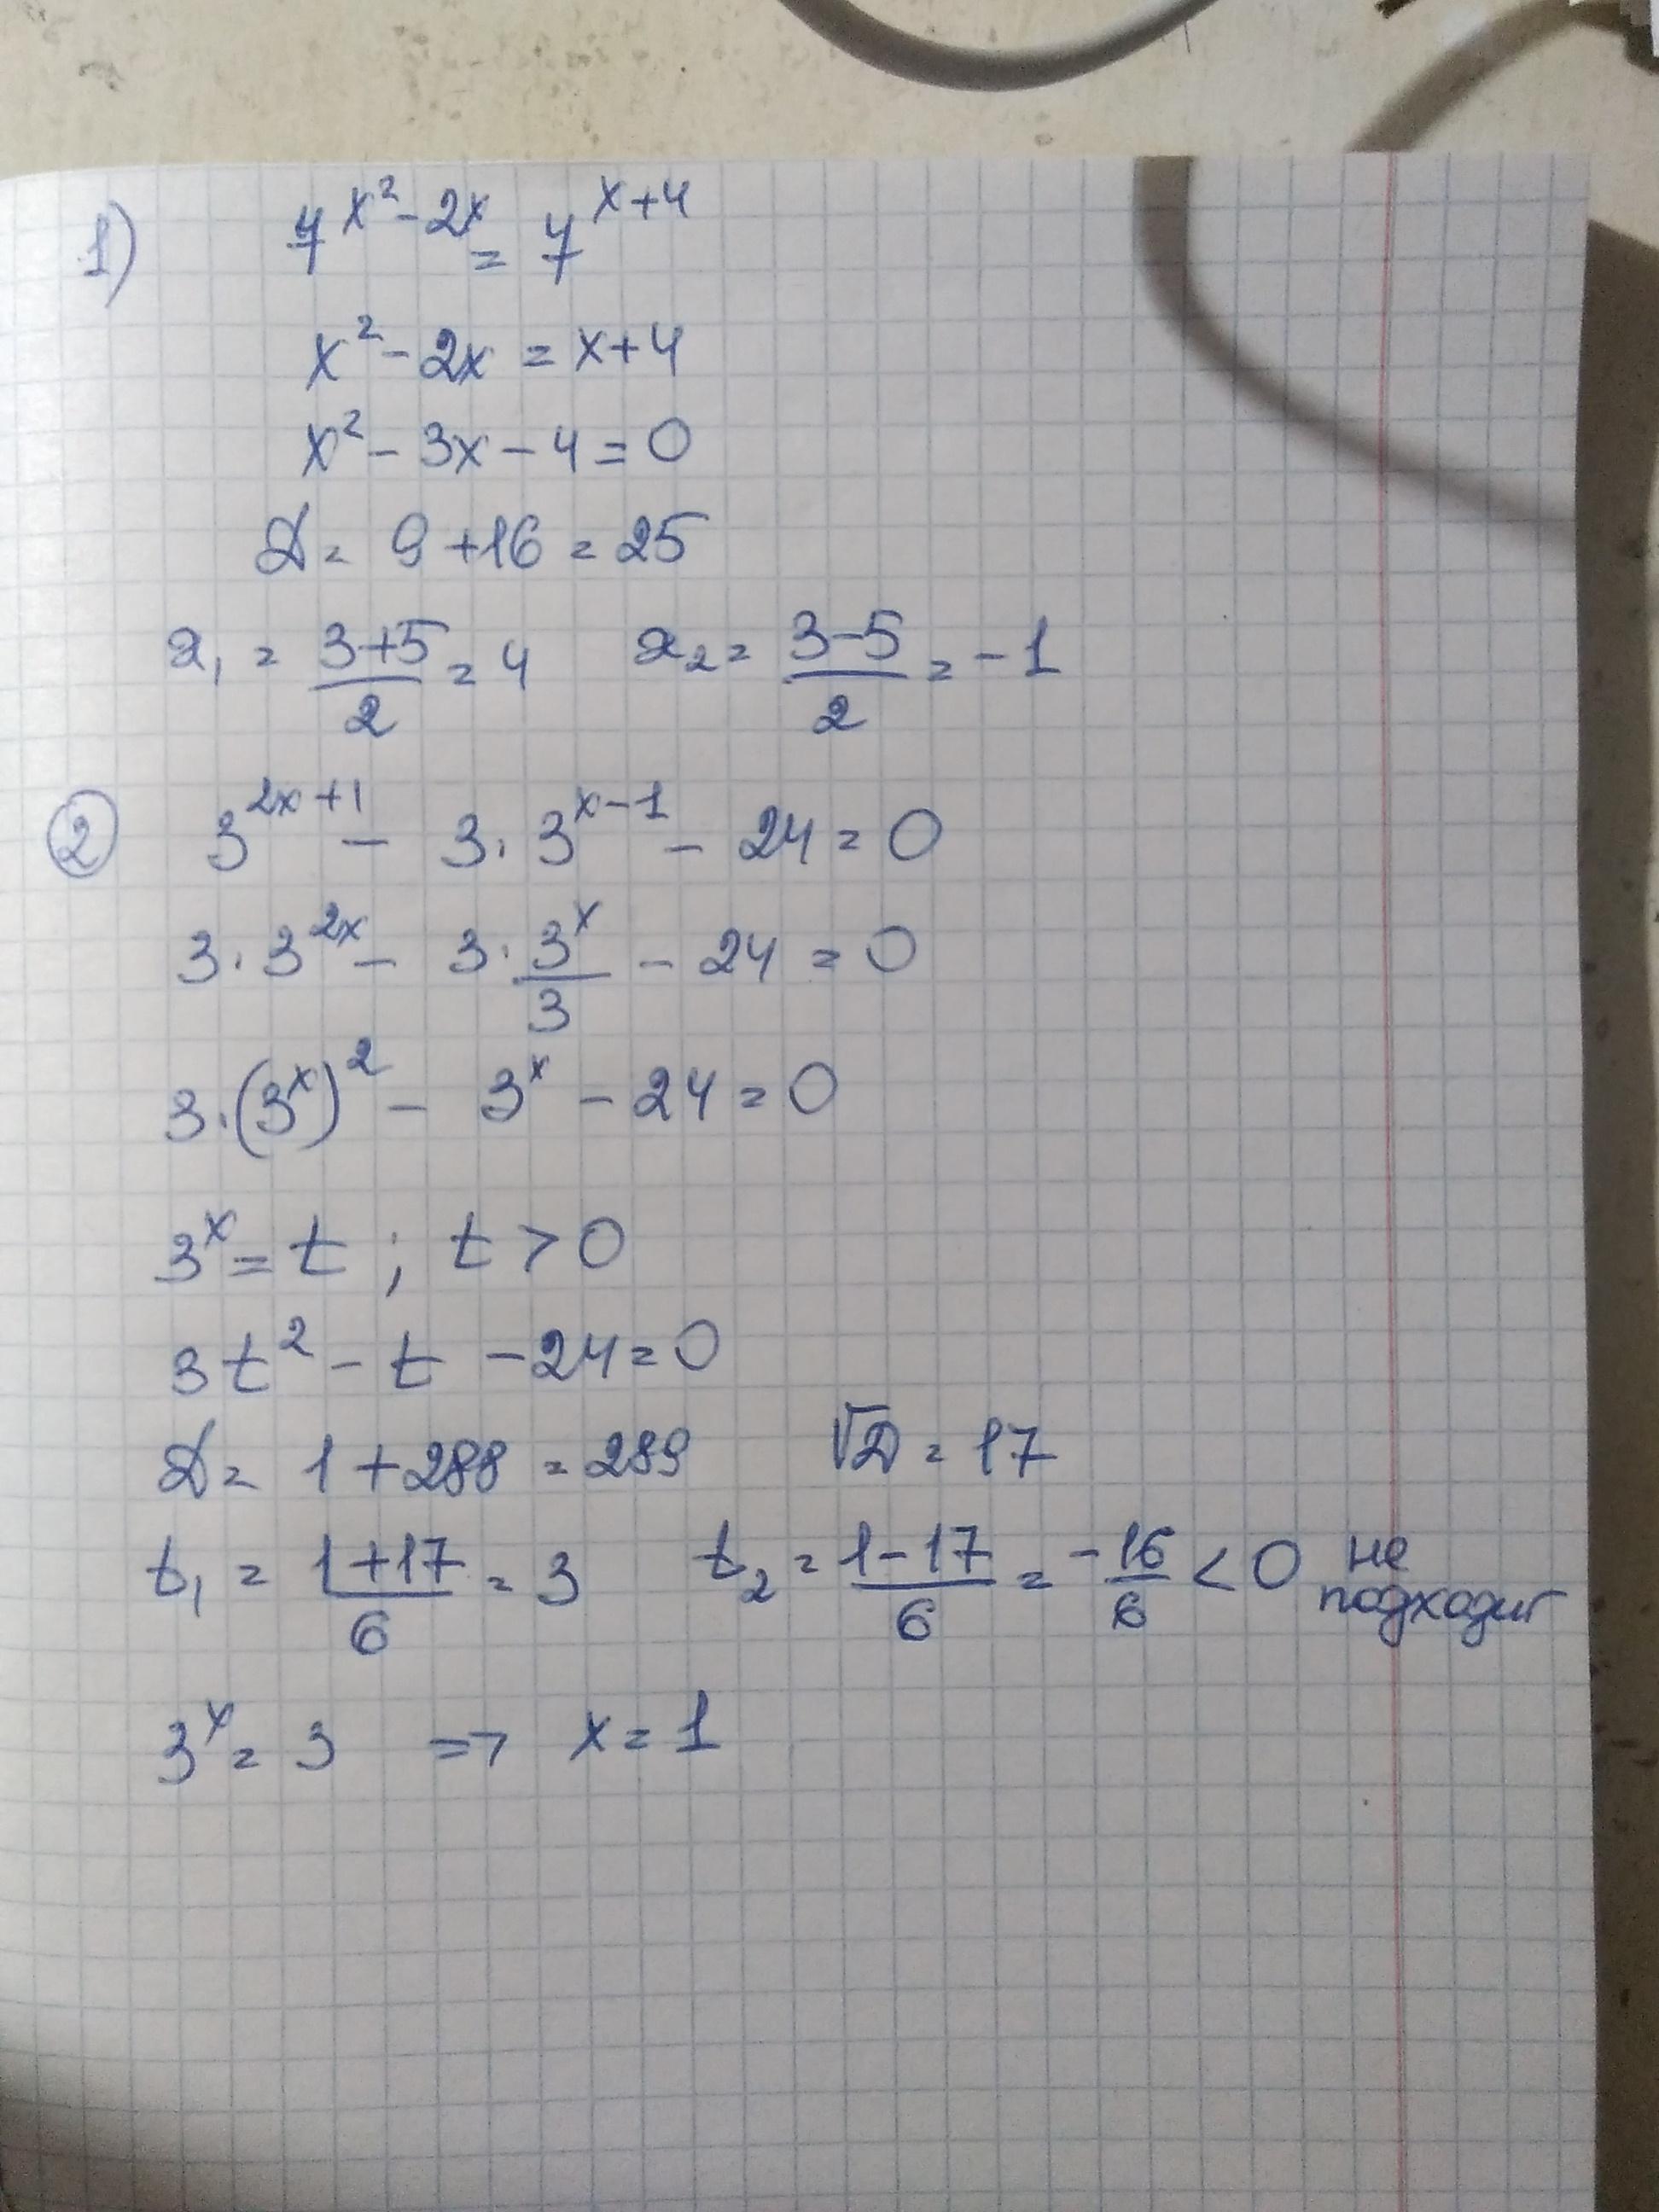 1) 7^(x²-2x) = 7^(x+4)
x² - 2x = x+4
x² - 3x - 4 = 0
D = 9+16 = 25
x₁ = (3+5)/2 = 4 x₂ = (3-5)/2 = -1
② 3^(2x+1) - 3·3^(x-1) - 24 = 0
3·3^(2x) - 3·3^x/3 - 24 = 0
3·(3^x)² - 3^x - 24 = 0
3^x = t ; t > 0
3t² - t - 24 = 0
D = 1+288 = 289 √D = 17
t₁ = (1+17)/6 = 3 t₂ = (1-17)/6 = -16/6 < 0 не подходит
3^x = 3 => x = 1